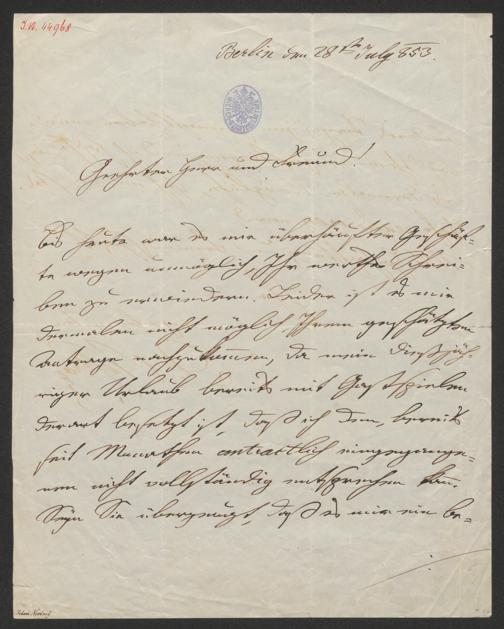 I.N. 44968
Berlin den 28ten July 853.
Geehrter Herr und Freund!
Bis heute war es mir überhäufter Geschäf-
te wegen unmöglich, Ihr werthes Schrei-
ben zu erwiedern. Leider ist es mir
dermalen nicht möglich, Ihrem geschätzten
Antrage nachzukommen, da mein dießjäh-
riger Urlaub bereits mit Gastspielen
derart besetzt ist, daß ich dem, bereits
seit Monathen contractlich eingegange-
nen nicht vollständig entsprechen kan.
Seyn Sie überzeugt, daß es mir ein be-